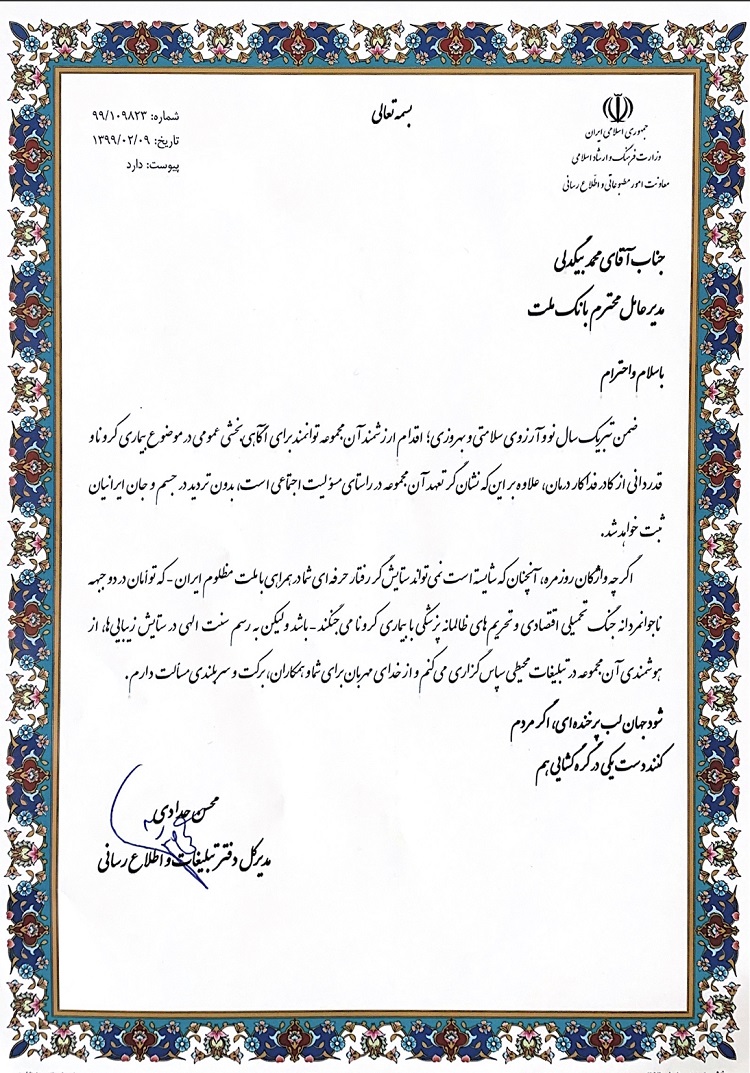 بسمه تعالی
جمهوری اسلامی ایران
وزارت فرهنگ و ارشاد اسلامی
معاونت امور مطبوعاتی و اطلاع رسانی
شماره: ۹۹/۱۰۹۸۲۳
تاریخ: ۱۳۹۹/۰۲/۰۹
پیوست: دارد
جناب آقای محمد بیگدلی
مدیر عامل محترم بانک ملت
با سلام و احترام
ضمن تبریک سال نو و آرزوی سلامتی و بهروزی؛ اقدام ارزشمند آن مجموعه توانمند برای آگاهی بخشی عمومی در موضوع بیماری کرونا و
قدردانی از کادر فداکار درمان، علاوه بر این که نشان گر تعهد آن مجموعه در راستای مسؤلیت اجتماعی است، بدون تردید در جسم و جان ایرانیان
ثبت خواهد شد.
اگر چه واژگان روزمره، آنچنان که شایسته است نمی تواند ستایش گر رفتار حرفه ای شما در همراهی با ملت مظلوم ایران - که توأمان در دو جبهه
ناجوانمردانه جنگ تحمیلی اقتصادی و تحریم های ظالمانه پزشکی با بیماری کرونا می جنگند - باشد ولیکن به رسم سنت الهی در ستایش زیبایی ها، از
هوشمندی آن مجموعه در تبلیغات محیطی سپاس گزاری می کنم و از خدای مهربان برای شما و همکاران، برکت و سربلندی مسالت دارم.
شود جهان لب پرخنده ای، اگر مردم
کنند دست یکی در گره گشایی هم
محسن حدادی
مدیر کل دفتر تبلیغات و اطلاع رسانی